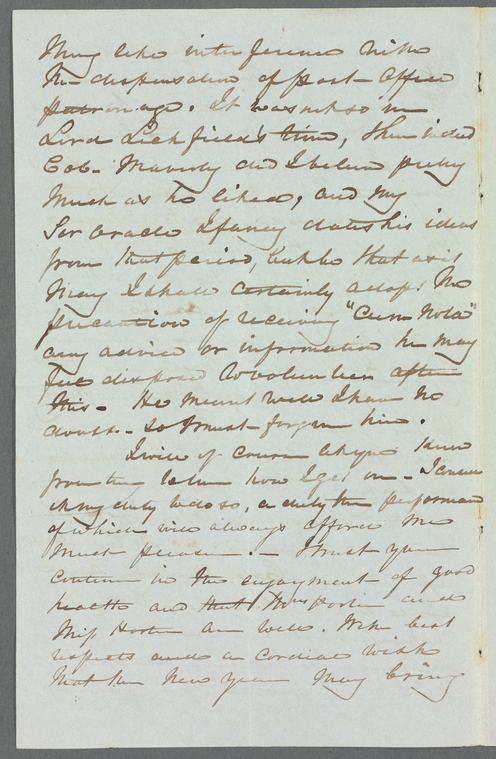 thing like interference with
the dispensation of post office
patronage. It was not so in
Lord Lichfield's time, then indeed
Col. Maberly did I believe pretty
much as he liked, and my
Sir Oracle I fancy dates his ideas
from that period, but be that as it
may I shall certainly adopt the
precaution of receiving "Cum Nota"
any advice or information he may
feel dispose to volunteer after
this. He meant well I have no
doubt - so I must forgive him.
I will of course let you know
from time to time how I get on - I
it my duty to do so, a duty the performance
of which will always afford me
much pleasure. - I trust you
continue in the enjoyment of good
health and that Mrs and
Miss are well. With best
respects and a cordial wish
that the New Year may bring